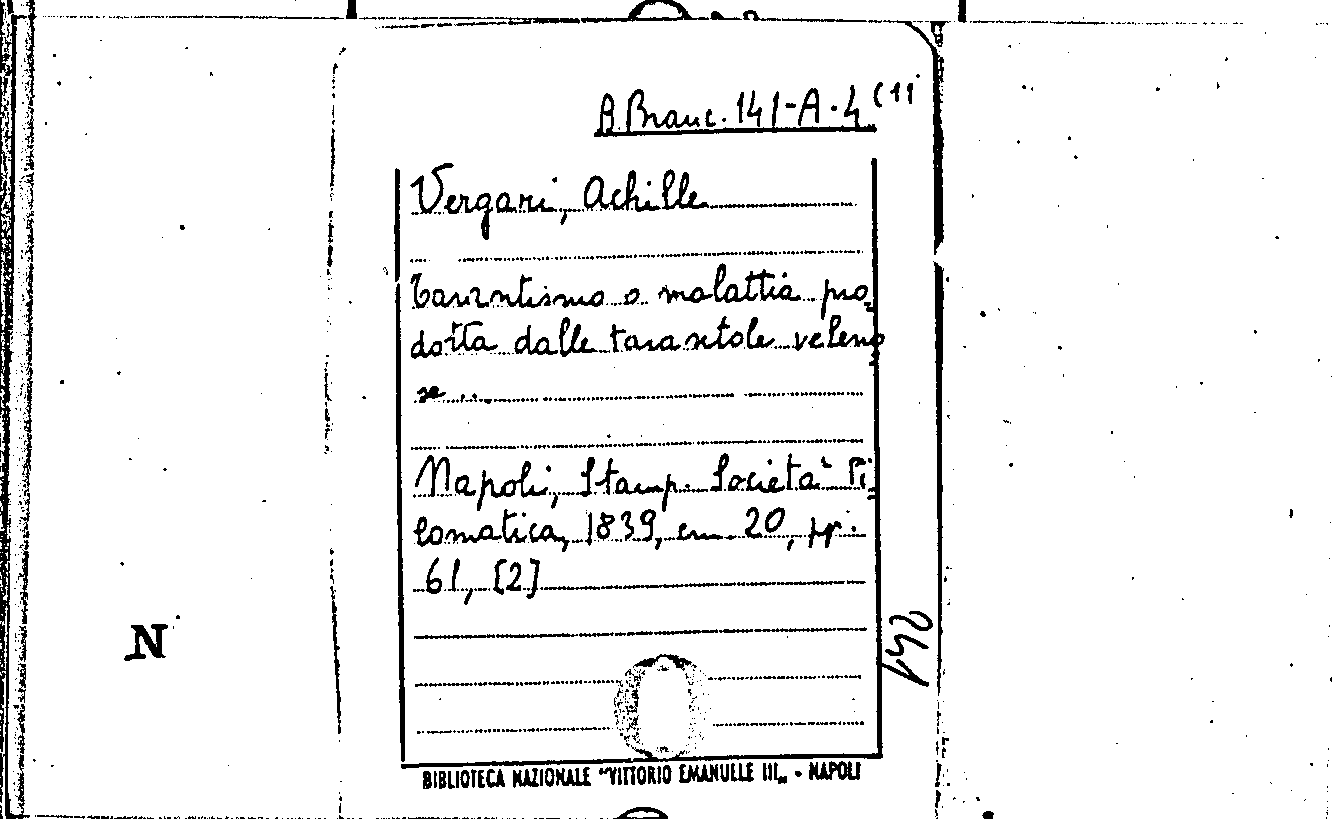 B. Branc. 141-A-4 (11
Vergari, Achille
Tarantismo o malattia pro-
dotta dalle tarantole veleno-
se ...
Napoli, Stamp. Società Fi-
lomatica, 1839, cm. 20, pp.
61, [2]
N
BIBLIOTECA NAZIONALE "VITTORIO EMANUELE III„ - NAPOLI